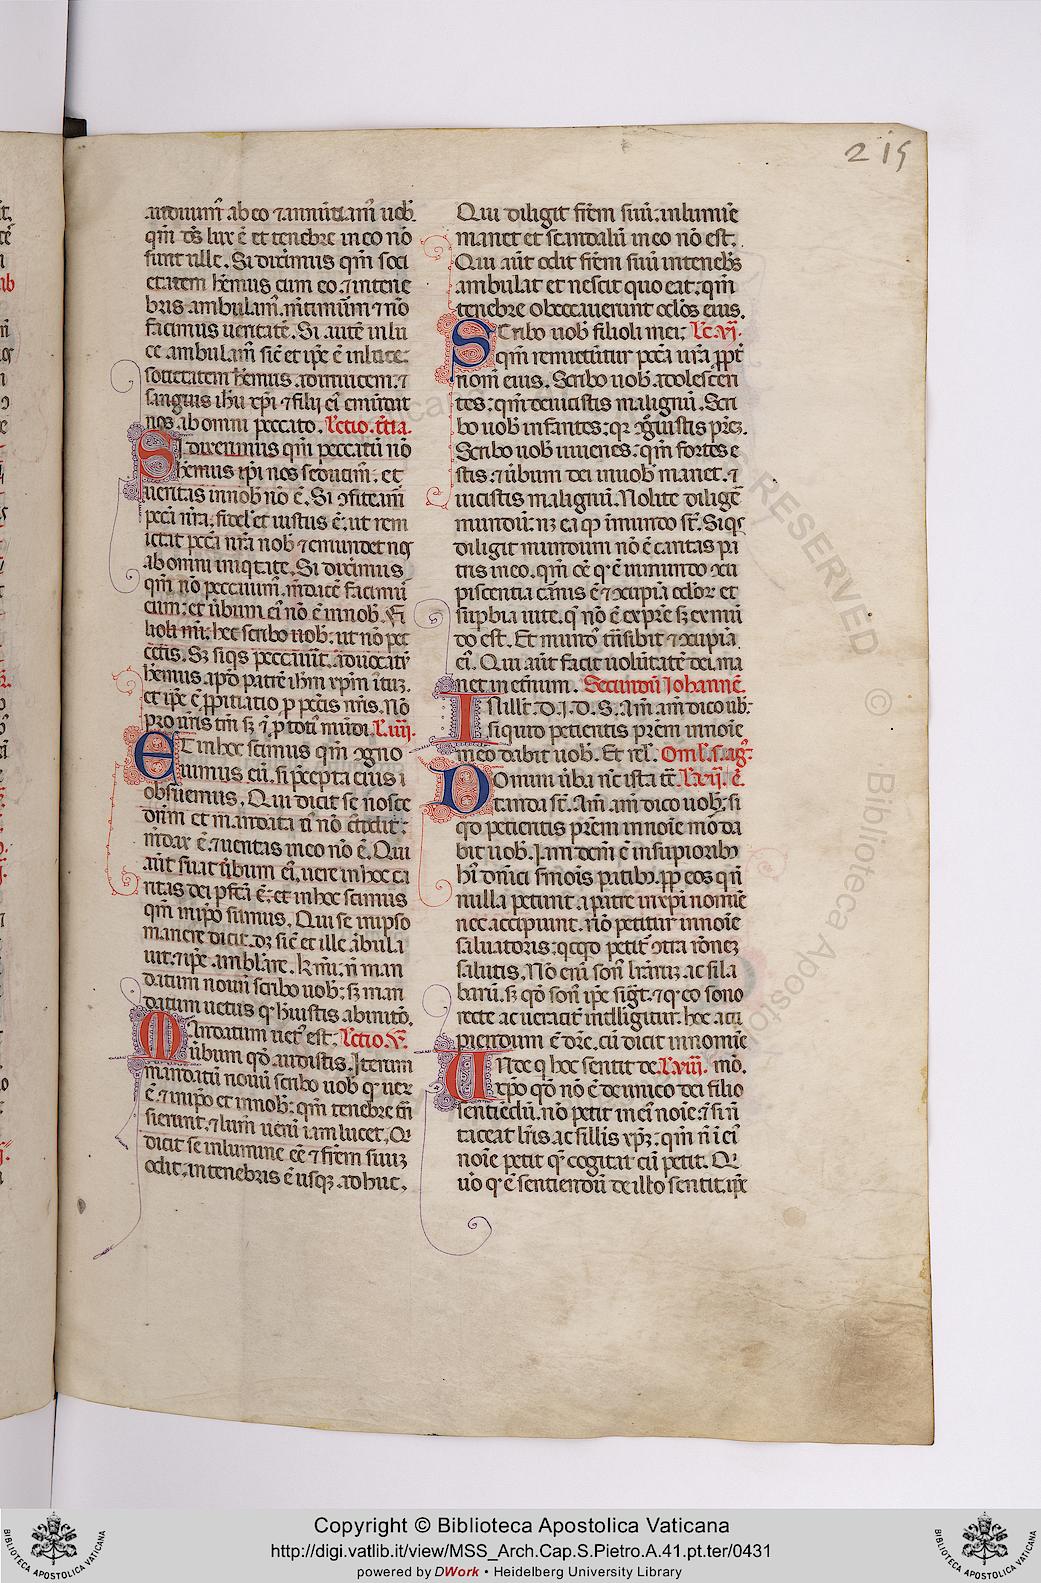 219
audiuim̄ ab eo ⁊ annūtiam̄ uob̄.
qm̄ ds̄ lux ē et tenebre in eo nō
sunt ulle. Si dixerimus qm̄ soci
etatem hēmus cum eo. ⁊ in tene
bris ambulam̄. mētimur̄ ⁊ nō
facimus ueritatē. Si autē in lu
ce ambulam̄ sic̄ et ip̄e ē in luce:
societatem hēmus adinuicem. ⁊
sanguis ih̄u xp̄i ⁊ filij ei᷒ emūdat
nos ab omni peccato. Lectio. t̄tia.
Si dixerimus qm̄ peccatū nō
hēmus ip̄i nos seducim̄. et
ueritas in nob̄ nō ē. Si ꝯfiteam̄
pccā nr̄a. fidel̄ et iustus ē. ut rem
ictat pccā nr̄a nob̄ ⁊ emundet nos
ab omni iniq̇tate. Si dixerimus
qm̄ nō peccauim̄. m̄dacē facimus
eum: et ūbum ei᷒ nō ē in nob̄. Fi
lioli mi: hec scribo uob̄. ut nō pec
cetis. Sꝫ siq̇s peccauīt. aduocatū
hēmus apd̄ patrē ih̄m xp̄m iustū.
et ip̄e ē ꝓpitiatio ꝓ pcc̄is nr̄is. Nō
pro nr̄is tm̄ sꝫ ⁊ ꝓ toti᷒ mūdi. L. iiij.
Et in hoc scimus qm̄ ꝯgno
uimus eū. si p̄cepta eius
obs̄uemus. Qui dicit se nosce
dm̄ et mandata ei᷒ nō c̄todit:
m̄dax ē. ⁊ ueritas in eo nō ē. Qui
aūt s̄uat ūbum ei᷒. uere in hoc ca
ritas dei pf̄cta ē: et in hoc scimus
qm̄ in ip̄o sumus. Qui se in ip̄so
manere dicit. dꝫ sic̄ et ille ābula
uit. ⁊ ip̄e amblāre. K̄mi: n̄ man
datum nouū scribo uob̄: sꝫ man
datum uetus qḋ hūistis ab initio.
Mandatum uet᷒ est. Lectio. v.
ūbum qḋ audistis. Iterum
mandatū nouū scribo uob̄ qḋ uer
ē. ⁊ in ip̄o et in nob̄: qm̄ tenebre tn̄
sierunt. ⁊ lum̄ uerū iam lucet. Qi
dicit se in lumine eē̄ ⁊ fr̄em suuꝫ
odit. in tenebris ē usqꝫ adhuc.
Qui diligit fr̄em suū. in lumīe
manet et scandalū in eo nō est.
Qui aūt odit fr̄em suū in tenebs̄
ambulat et nescit quo eat: qm̄
tenebre obcecauerunt oclōs eius.
Scribo uob̄ filioli mei: Lc̄. vi.
qm̄ remictūtur pccā ur̄a ꝓpt̄
nom̄ eius. Scribo uob̄ adolescen
tes: qm̄ deuicistis malignū. Scri
bo uob̄ infantes: qꝛ ꝯgūistis pr̄eꝫ.
Scribo uob̄ iuuenes: qm̄ fortes e
stis: ⁊ ūbum dei in uob̄ manet. ⁊
uicistis malignū. Nolite diligē
mundū: nꝫ ea q̄ i mundo st̄. Siq̇s
diligit mundum nō ē caritas pa
tris in eo. qm̄ oē qḋ ē in mundo ꝯcu
piscentia carnis ē ⁊ ꝯcupīa oclōꝝ et
suꝑbia uite. q̄ nō ē ex pr̄e sꝫ ex mū
do est. Et mund᷒ trāsibit ⁊ ꝯcupīa
ei᷒. Qui aūt facit uolūtatē dei. ma
net in etnum. Secundū Johannē.
In ill'. t̄. D. I. D. S. Am̄ am̄ dico ub̄.
si quid petieritis pr̄em in noīe
meo dabit uob̄. Et rel̄. Oml̄. s. aḡ.
Domini ūba nc̄ ista tr̄. L. vii. c̄
tanda st̄. Am̄ am̄ dico uob̄: si
qḋ petieritis pr̄em in noīe mō da
bit uob̄. Iam dcm̄ ē in supiorib᷒
hi᷒ dn̄ici sm̄ois partib᷒. ꝓp̄ eos qui
nulla petunt a patre in xp̄i nomīe
nec accipiunt. nō petitur in noīe
saluatoris: qcqd petit᷒ ꝯtra rōneꝫ
salutis. Nō enī sonū lr̄aruꝫ ac silla
barū. sꝫ qḋ son᷒ ip̄e sigt̄. ⁊ qḋ eo sono
recte ac ueracit̄ intelligitur. hoc acci
piendum ē d̄r̄e. cū dicit in nomīe
Unde q̇ hoc sentit de. L. viii. mō.
xp̄o qḋ nō ē de unico dei filio
sentiēdū. nō petit in ei᷒ noīe. ⁊ si n̄
taceat lr̄is ac sillis xp̄ꝫ: qm̄ n̄ i ei᷒
noīe petit qḋ cogitat cū petit. Q̇
ūo qḋ ē sentiendū de illo sentit. ip̄e
RESERVED © Biblioteca Apostolica
BIBLIOTECA APOSTOLICA VATICANA
Copyright © Biblioteca Apostolica Vaticana
http://digi.vatlib.it/view/MSS_Arch.Cap.S.Pietro.A.41.pt.ter/0431
powered by DWork • Heidelberg University Library
BIBLIOTECA APOSTOLICA VATICANA